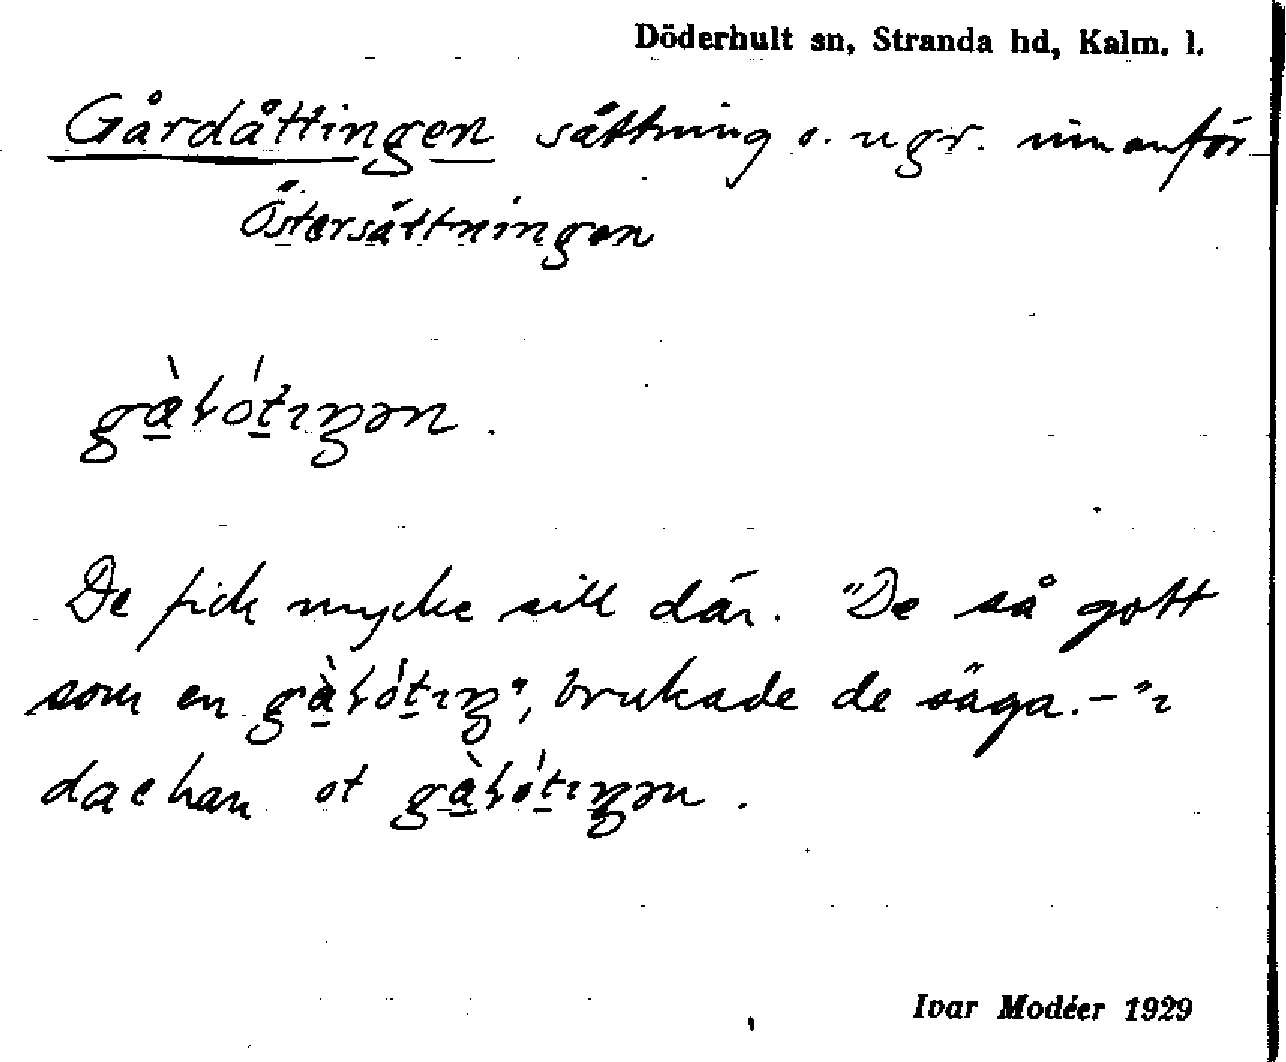 Döderhult sn, Stranda hd, Kalm. l.
Gårdåttingen sättning o. ugr. innanför
Östersättningen
gàɽótıŋən.
De fick mycke sill där. "De så gott
som en gàɽótıŋ", brukade de säga. – "ı
dac han ot gàɽótıŋən.
Ivar Modéer 1929